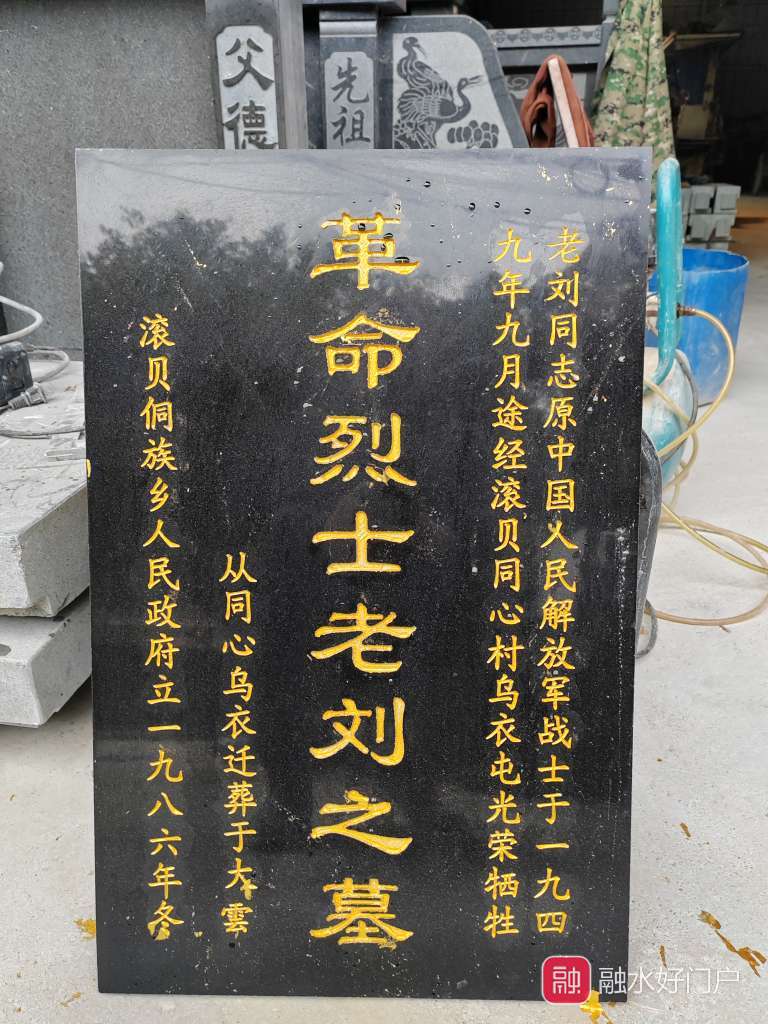 老刘同志原中国人民解放军战士于一九四
九年九月途经滚贝同心村乌衣屯光荣牺牲
革命烈士老刘之墓
从同心乌衣迁葬于大雲
滚贝侗族乡人民政府立一九八六年冬
先祖
父德
融 融水好门户